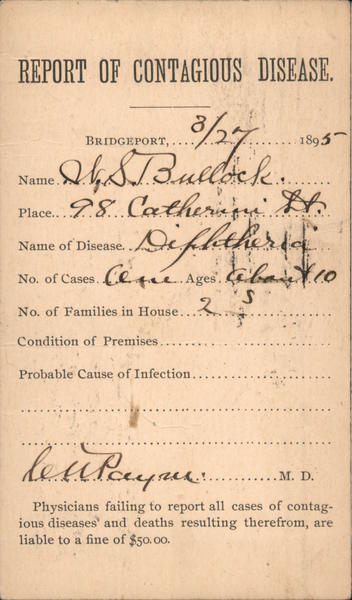 REPORT OF CONTAGIOUS DISEASE.
BRIDGEPORT, 3/27 1895
Name W. S. Bullock.
Place 98 Catherine St.
Name of Disease. Diphtheria
No. of Cases One Ages about 10
No. of Families in House 2
Condition of Premises
Probable Cause of Infection
Payne M. D.
Physicians failing to report all cases of contag-
ious diseases and deaths resulting therefrom, are
liable to a fine of $50.00.